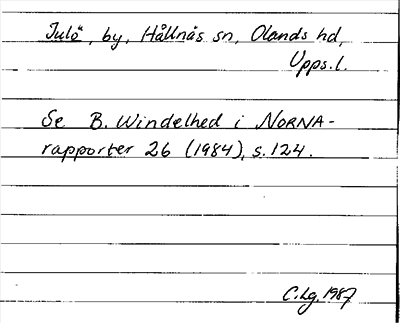 Julö, by, Hållnäs sn, Olands hd,
Upps.l.
Se B. Windelhed i NORNA-
rapporter 26 (1984), s. 124.
C.Lg. 1987